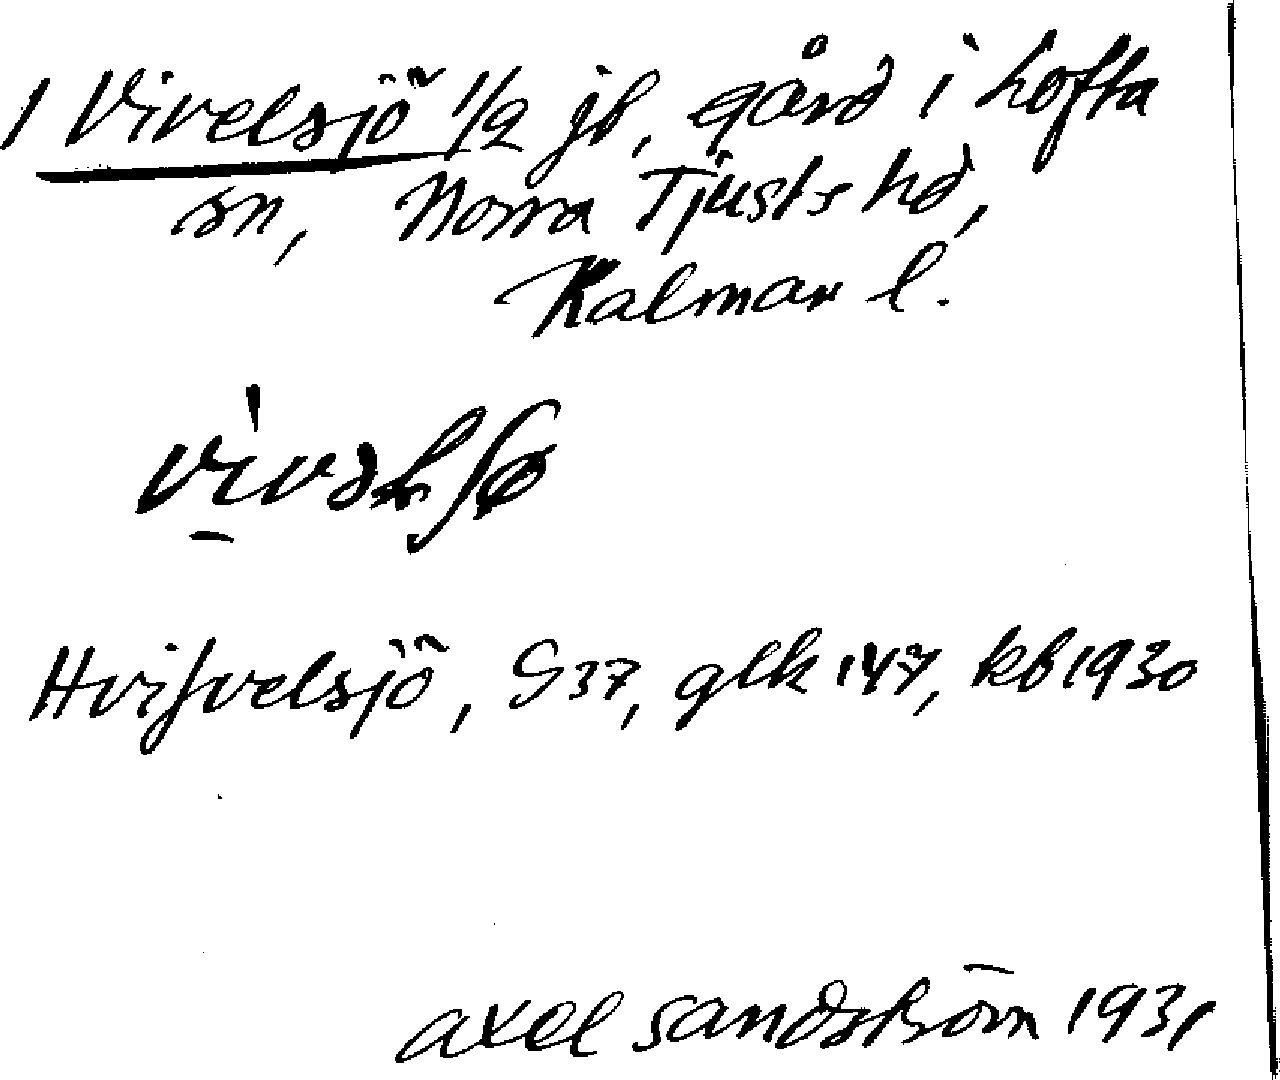 1 Vivelsjö 1/2 jb, gård i Lofta
sn, Norra Tjusts hd,
Kalmar l.
Hvifvelsjö, G37, glk 147, kb 1930
Axel Sandström 1931